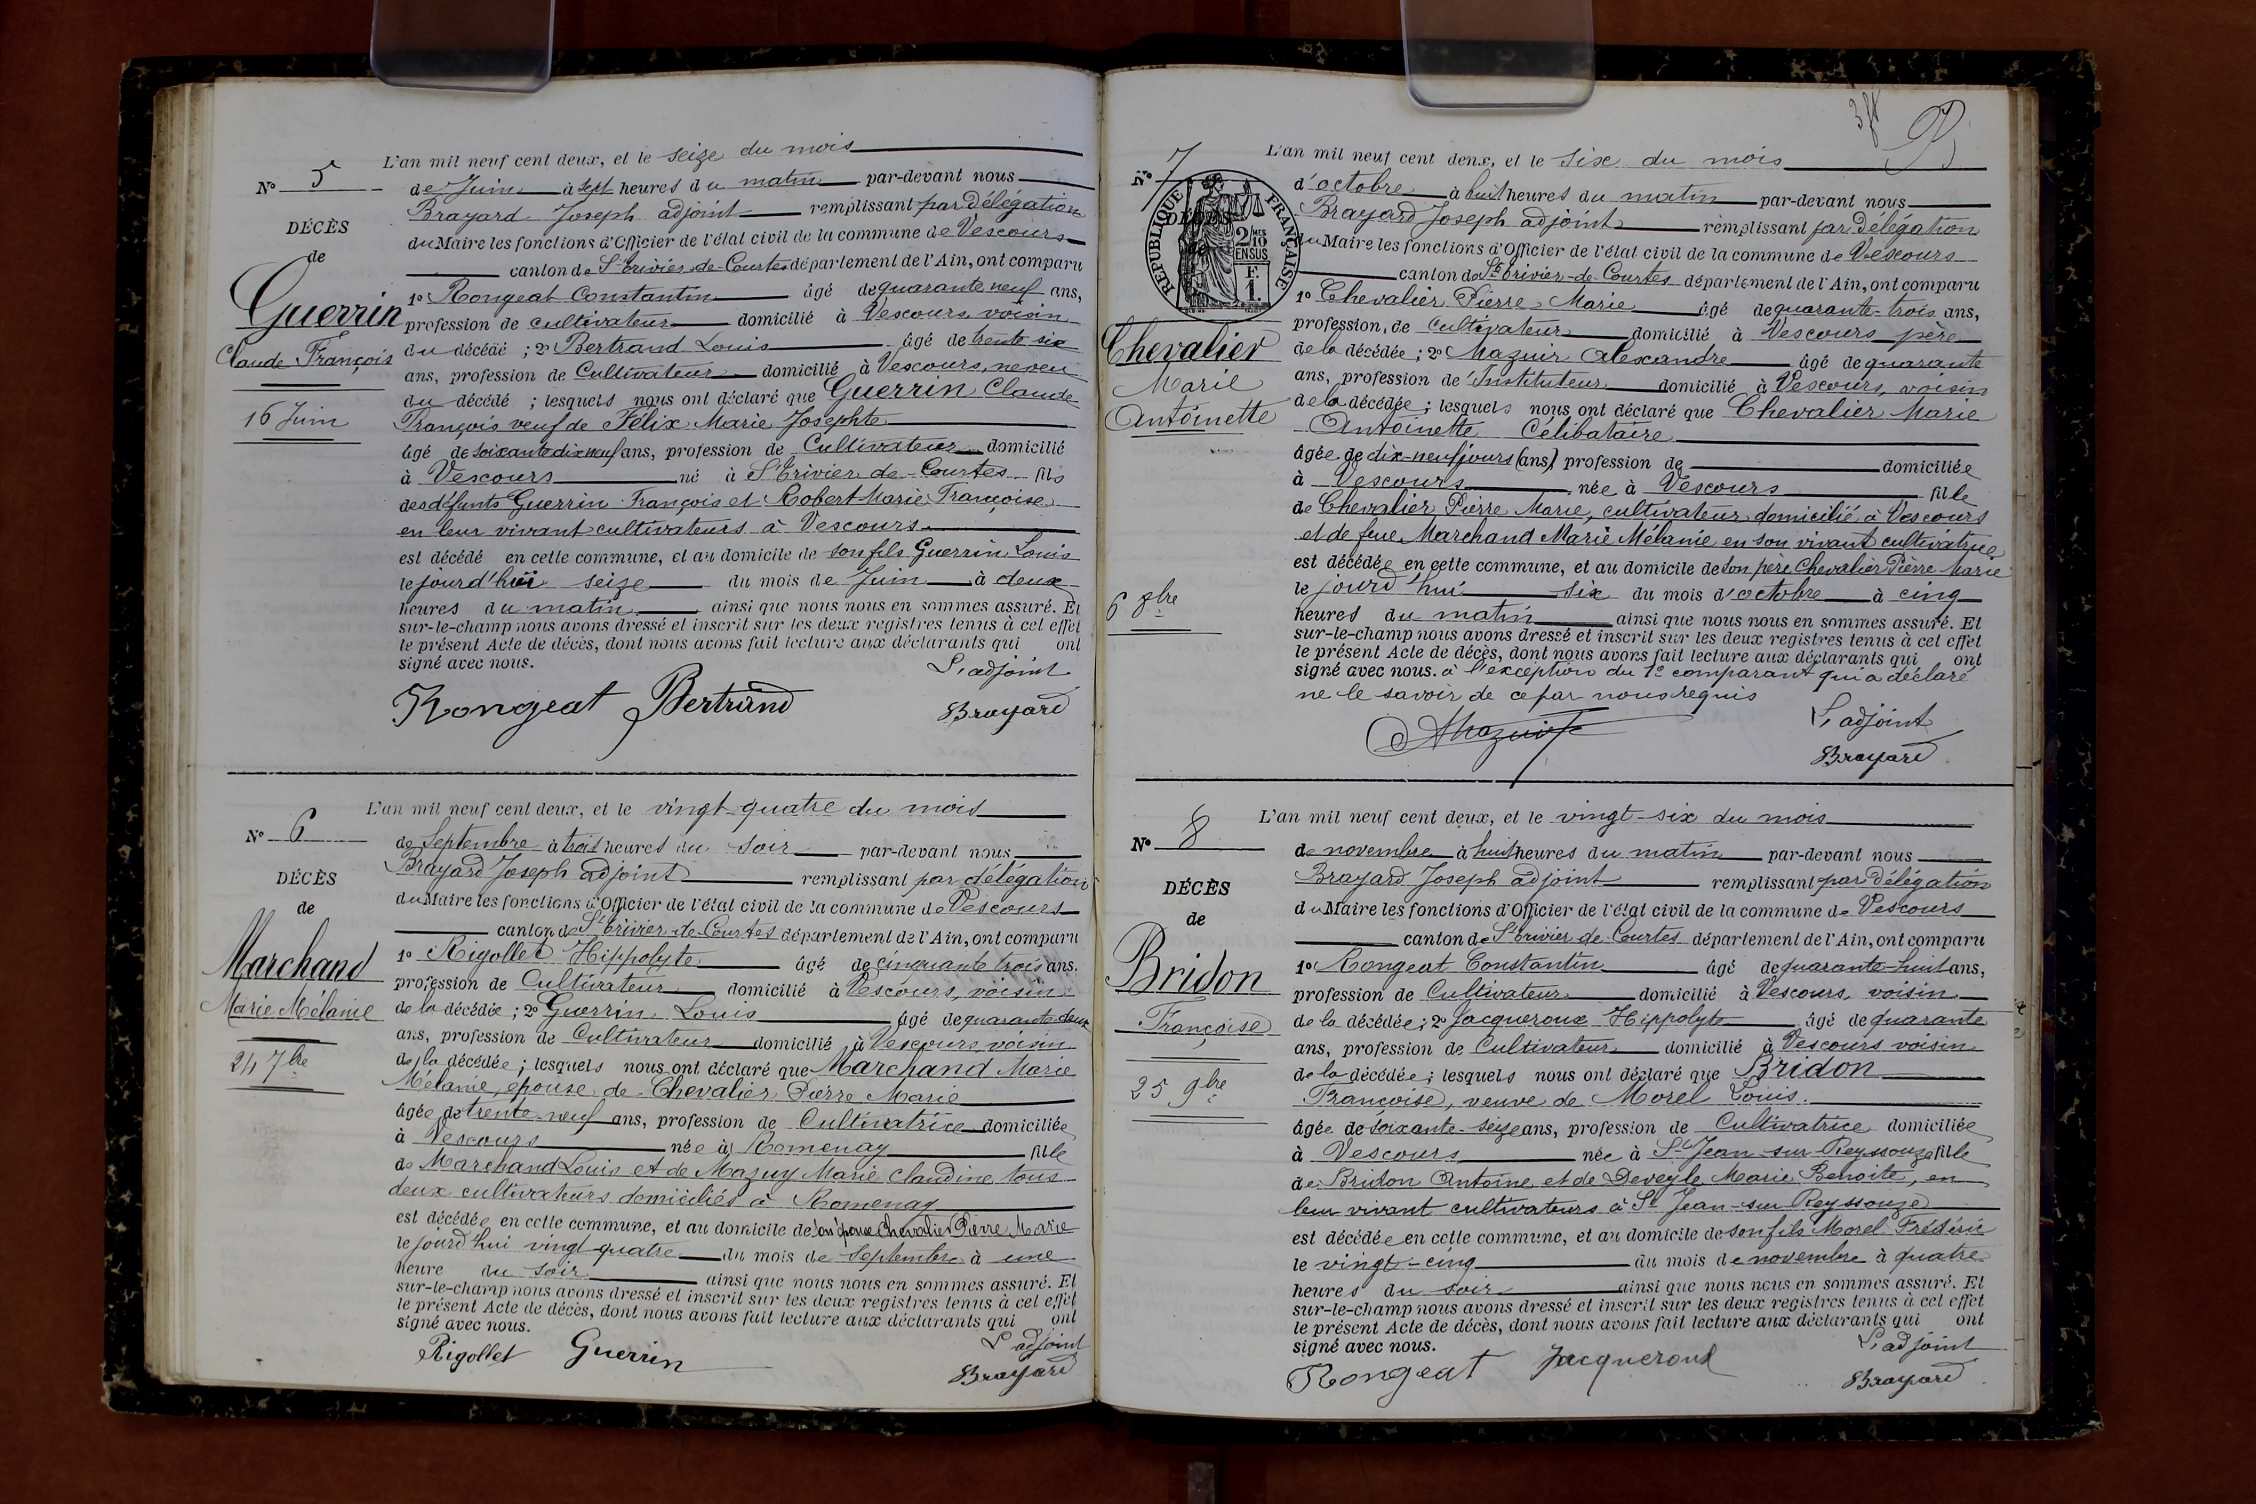 L'an mil neuf cent deux, et le seize du mois
N° 5
de Juin à sept heures du matin par-devant nous
Brayard Joseph adjoint remplissant par délégation
DÉCÈS
du Maire les fonctions d'Officier de l'état civil de la commune de Vescours
de
canton de St Trivier-de-Courtes département de l'Ain, ont comparu
Guerrin
1° Rongeat Constantin âgé de quarante neuf ans,
profession de cultivateur domicilié à Vescours voisin
Claude François
du décédé ; 2° Bertrand Louis âgé de trente six
ans, profession de Cultivateur domicilié à Vescours, neveu
16 Juin
du décédé ; lesquels nous ont déclaré que Guerrin Claude
François veuf de Félix Marie Josephte
âgé de soixante dix neuf ans, profession de Cultivateur domicilié
à Vescours né à St Trivier de Courtes fils
des défunts Guerrin François et Robert Marie Françoise
en leur vivant cultivateurs à Vescours
est décédé en cette commune, et au domicile de son fils Guerrin Louis
le jourd'hui seize du mois de Juin à deux
heures du matin ainsi que nous nous en sommes assuré. Et
sur-le-champ nous avons dressé et inscrit sur les deux registres tenus à cet effet
le présent Acte de décès, dont nous avons fait lecture aux déclarants qui ont
signé avec nous.
L'adjoint
Rongeat Bertrand Brayard
L'an mil neuf cent deux, et le vingt-quatre du mois
N° 6
de Septembre à trois heures du soir par-devant nous
Brayard Joseph adjoint remplissant par délégation
DÉCÈS
du Maire les fonctions d'Officier de l'état civil de la commune de Vescours
de
canton de St Trivier-de-Courtes département de l'Ain, ont comparu
Marchand
1° Rigollet Hippolyte âgé de cinquante trois ans.
profession de Cultivateur domicilié à Vescours, voisin
Marie Mélanie
de la décédée ; 2° Guerrin Louis âgé de quarante deux
ans, profession de Cultivateur domicilié à Vescours, voisin
24 7bre
de la décédée ; lesquels nous ont déclaré que Marchand Marie
Mélanie, épouse de Chevalier Pierre Marie
âgée de trente-neuf ans, profession de Cultivatrice domiciliée
à Vescours née à Romenay fille
de Marchand Louis et de Mazuy Marie Claudine tous
deux cultivateurs domiciliés à Romenay
est décédée en cette commune, et au domicile de son époux Chevalier Pierre Marie
le jourd'hui vingt quatre du mois de Septembre à une
heure du soir ainsi que nous nous en sommes assuré. Et
sur-le-champ nous avons dressé et inscrit sur les deux registres tenus à cet effet
le présent Acte de décès, dont nous avons fait lecture aux déclarants qui ont
signé avec nous.
L'adjoint
Rigollet Guerrin Brayard
L'an mil neuf cent deux, et le six du mois
N° 7
d'octobre à huit heures du matin par-devant nous
Brayard Joseph adjoint remplissant par délégation
RÉPUBLIQUE FRANÇAISE
DÉCÈS
2/10 EN SUS
F. 1.
du Maire les fonctions d'Officier de l'état civil de la commune de Vescours
canton de St Trivier-de-Courtes département de l'Ain, ont comparu
1° Chevalier Pierre Marie âgé de quarante-trois ans,
profession de Cultivateur domicilié à Vescours père
Chevalier
de la décédée ; 2° Mazuir Alexandre âgé de quarante
Marie
ans, profession de Instituteur domicilié à Vescours, voisin
Antoinette
de la décédée ; lesquels nous ont déclaré que Chevalier Marie
Antoinette Célibataire
âgée de dix-neuf jours (ans) profession de domiciliée
à Vescours née à Vescours fille
de Chevalier Pierre Marie, cultivateur domicilié à Vescours
et de feue Marchand Marie Mélanie en son vivant cultivatrice
est décédée en cette commune, et au domicile de son père Chevalier Pierre Marie
6 8bre
le jourd'hui six du mois d'octobre à cinq
heures du matin ainsi que nous nous en sommes assuré. Et
sur-le-champ nous avons dressé et inscrit sur les deux registres tenus à cet effet
le présent Acte de décès, dont nous avons fait lecture aux déclarants qui ont
signé avec nous. à l'exception du 1er comparant qui a déclaré
ne le savoir de ce par nous requis
L'adjoint
AMazuir Brayard
L'an mil neuf cent deux, et le vingt-six du mois
N° 8
de novembre à huit heures du matin par-devant nous
Brayard Joseph adjoint remplissant par délégation
DÉCÈS
du Maire les fonctions d'Officier de l'état civil de la commune de Vescours
de
canton de St Trivier de Courtes département de l'Ain, ont comparu
Bridon
1° Rongeat Constantin âgé de quarante-huit ans,
profession de Cultivateur domicilié à Vescours, voisin
Françoise
de la décédée ; 2° Jacqueroux Hippolyte âgé de quarante
ans, profession de Cultivateur domicilié à Vescours voisin
25 9bre
de la décédée ; lesquels nous ont déclaré que Bridon
Françoise, veuve de Morel Louis.
âgée de soixante-seize ans, profession de Cultivatrice domiciliée
à Vescours née à St Jean-sur-Reyssouze fille
de Bridon Antoine et de Deveyle Marie Benoîte, en
leur vivant cultivateurs à St Jean-sur Reyssouze
est décédée en cette commune, et au domicile de son fils Morel Frédéric
le vingt-cinq du mois de novembre à quatre
heures du soir ainsi que nous nous en sommes assuré. Et
sur-le-champ nous avons dressé et inscrit sur les deux registres tenus à cet effet
le présent Acte de décès, dont nous avons fait lecture aux déclarants qui ont
signé avec nous.
L'adjoint
Rongeat Jacqueroux Brayard